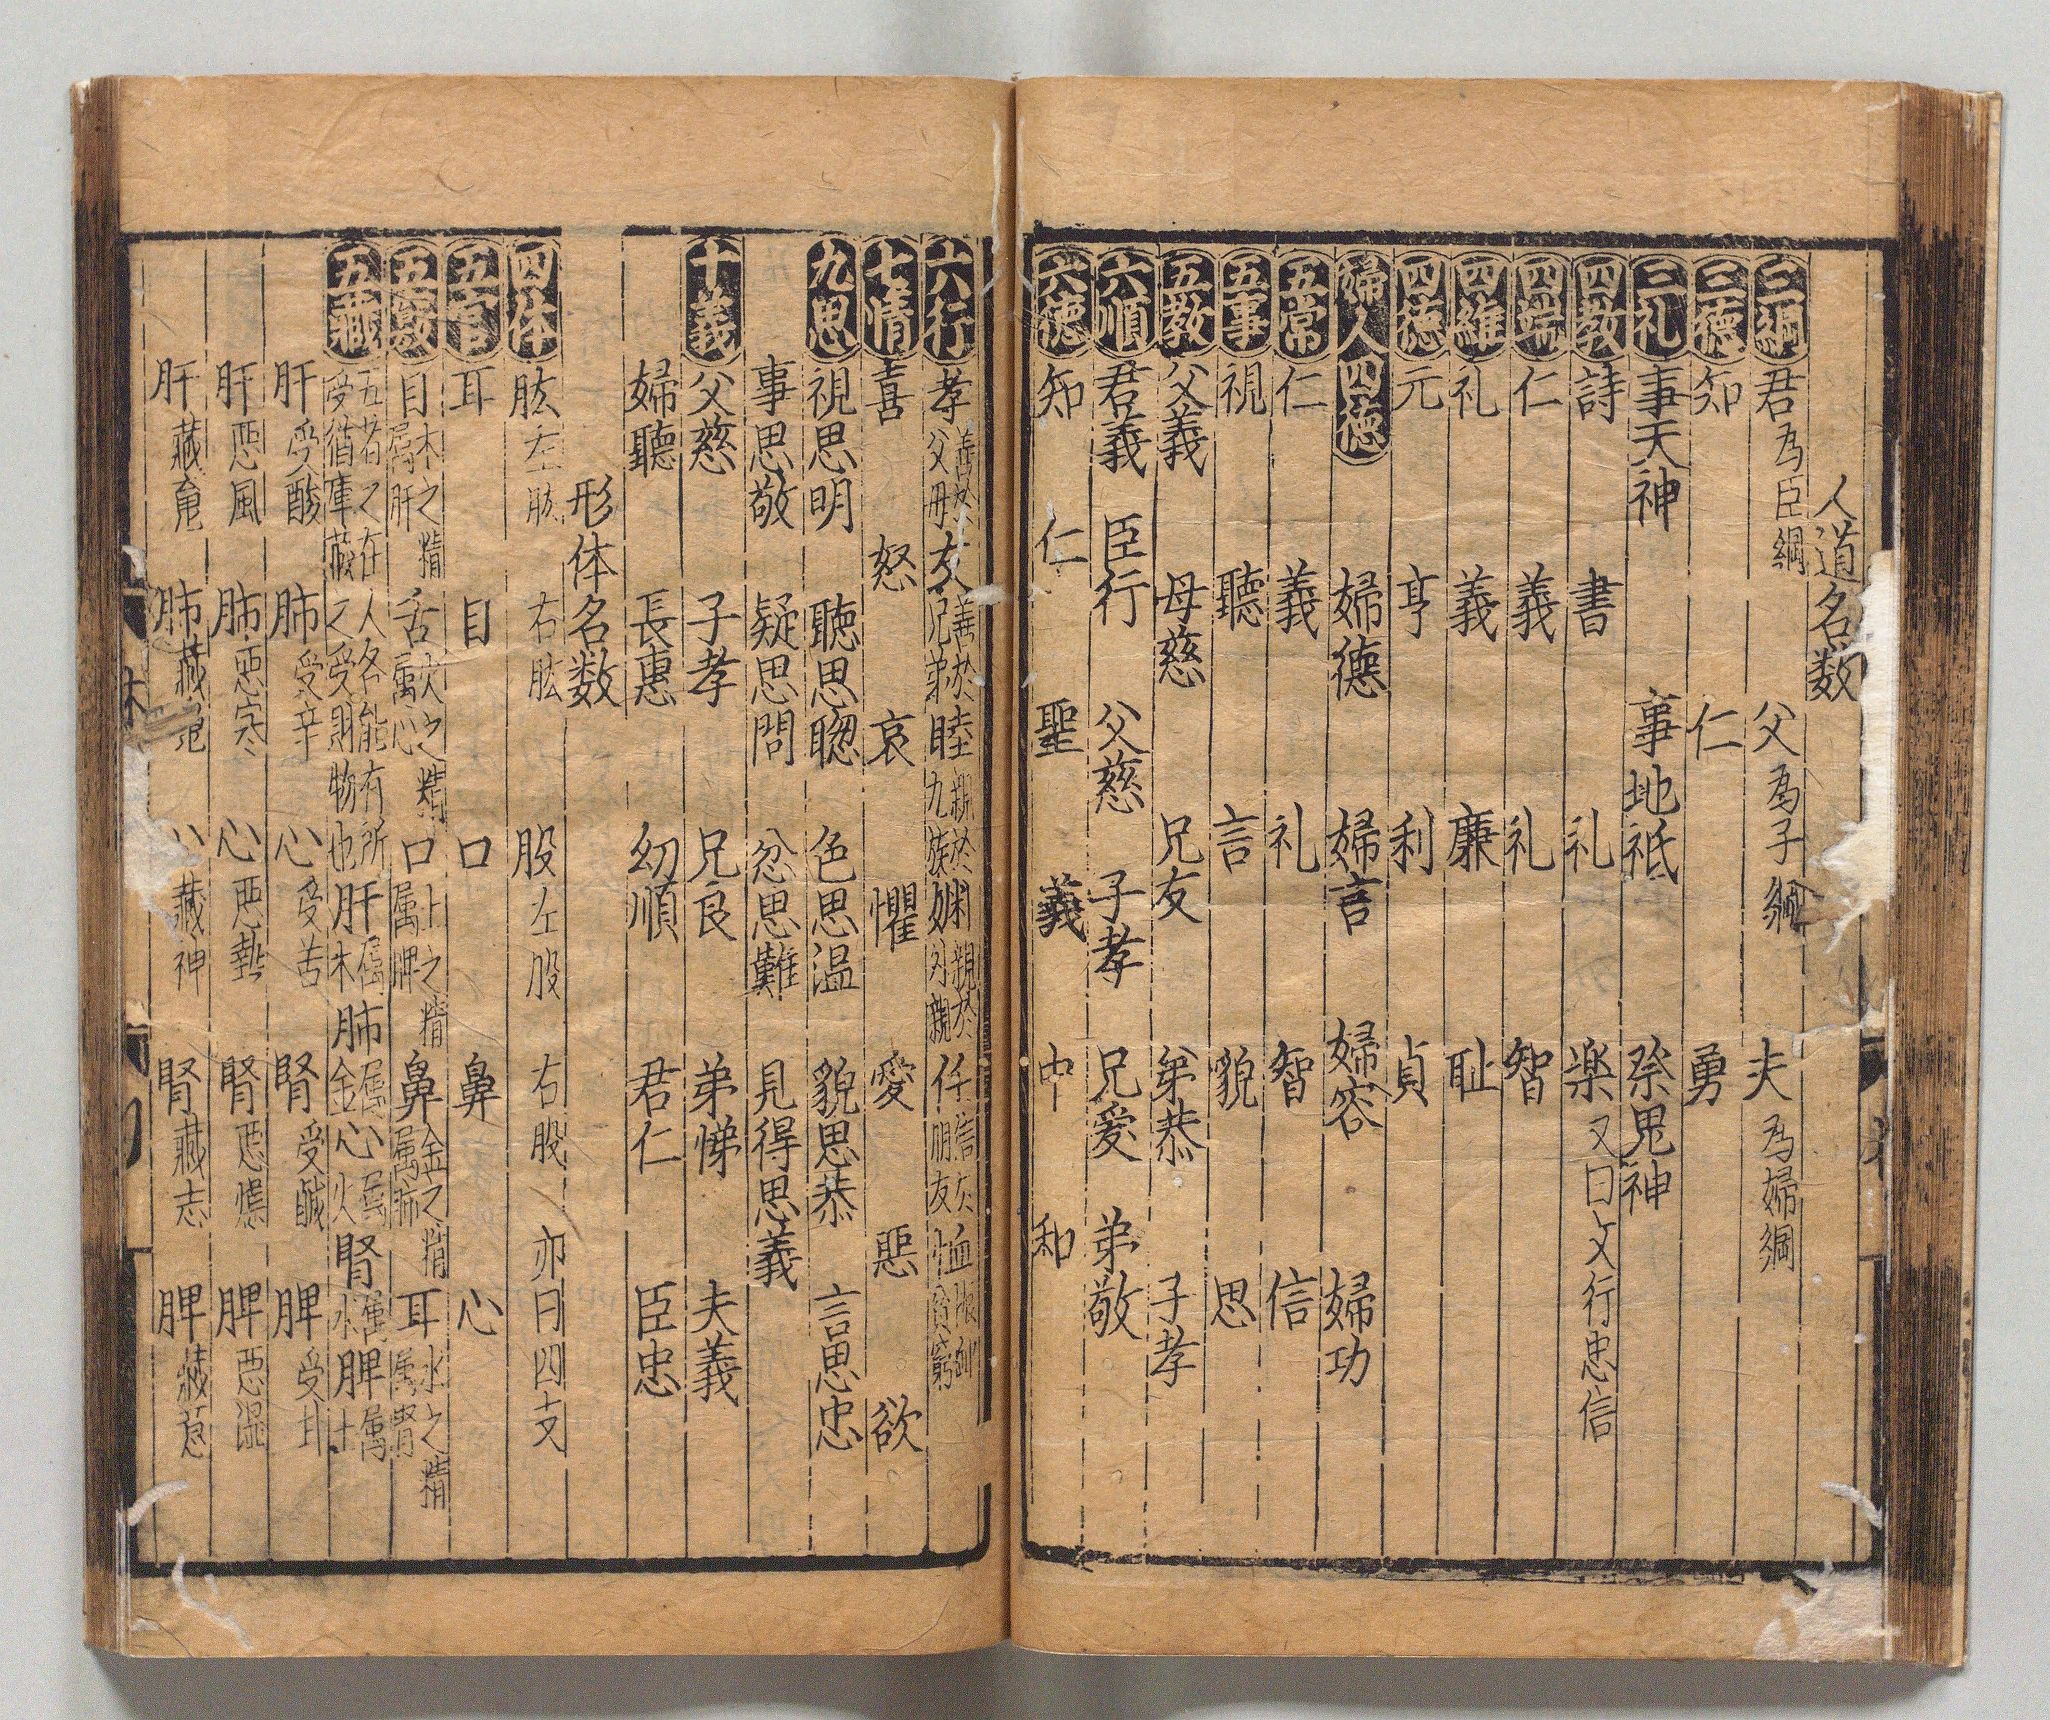 人道名数
三綱 君為臣綱 父為子綱 夫為婦綱
三徳 知 仁 勇
三礼 事天神 事地祇 祭鬼神
四教 詩 書 礼 楽 又曰文行忠信
四端 仁 義 礼 智
四維 礼 義 廉 耻
四徳 元 亨 利 貞
婦人四徳 婦德 婦言 婦容 婦功
五常 仁 義 礼 智 信
五事 視 聽 言 貌 思
五教 父義 母慈 兄友 弟恭 子孝
六順 君義 臣行 父慈 子孝 兄爱 弟敬
六徳 知 仁 聖 義 中 和
六行 孝善於父母 友善於兄弟 睦親於九族 婣親於外親 任信於朋友 恤賑
貧窮
七情 喜 怒 哀 懼 愛 惡 欲
九思 視思明 聽思聰 色思温 貌思恭 言思忠
事思敬 疑思問 忿思難 見得思義
十義 父慈 子孝 兄良 弟悌 夫義
婦聽 長惠 幼順 君仁 臣忠
形体名数
四体 肱左肱 右肱 股左股 右股 亦曰四支
五官 耳 目 口 鼻 心
目木之精属肝 舌火之精属心 口土之精属脾 鼻金之精属肺 耳水之精属腎
五藏 五者之在人各能有所受猶庫藏之受財物也 肝属木 肺属金 心属火 腎属水 脾属土
肝受酸 肺受辛 心受苦 腎受鹹 脾受甘
肝惡風 肺惡寒 心惡熱 腎惡燥 脾惡濕
肝藏䰟 肺藏魄 心藏神 腎藏志 脾藏意